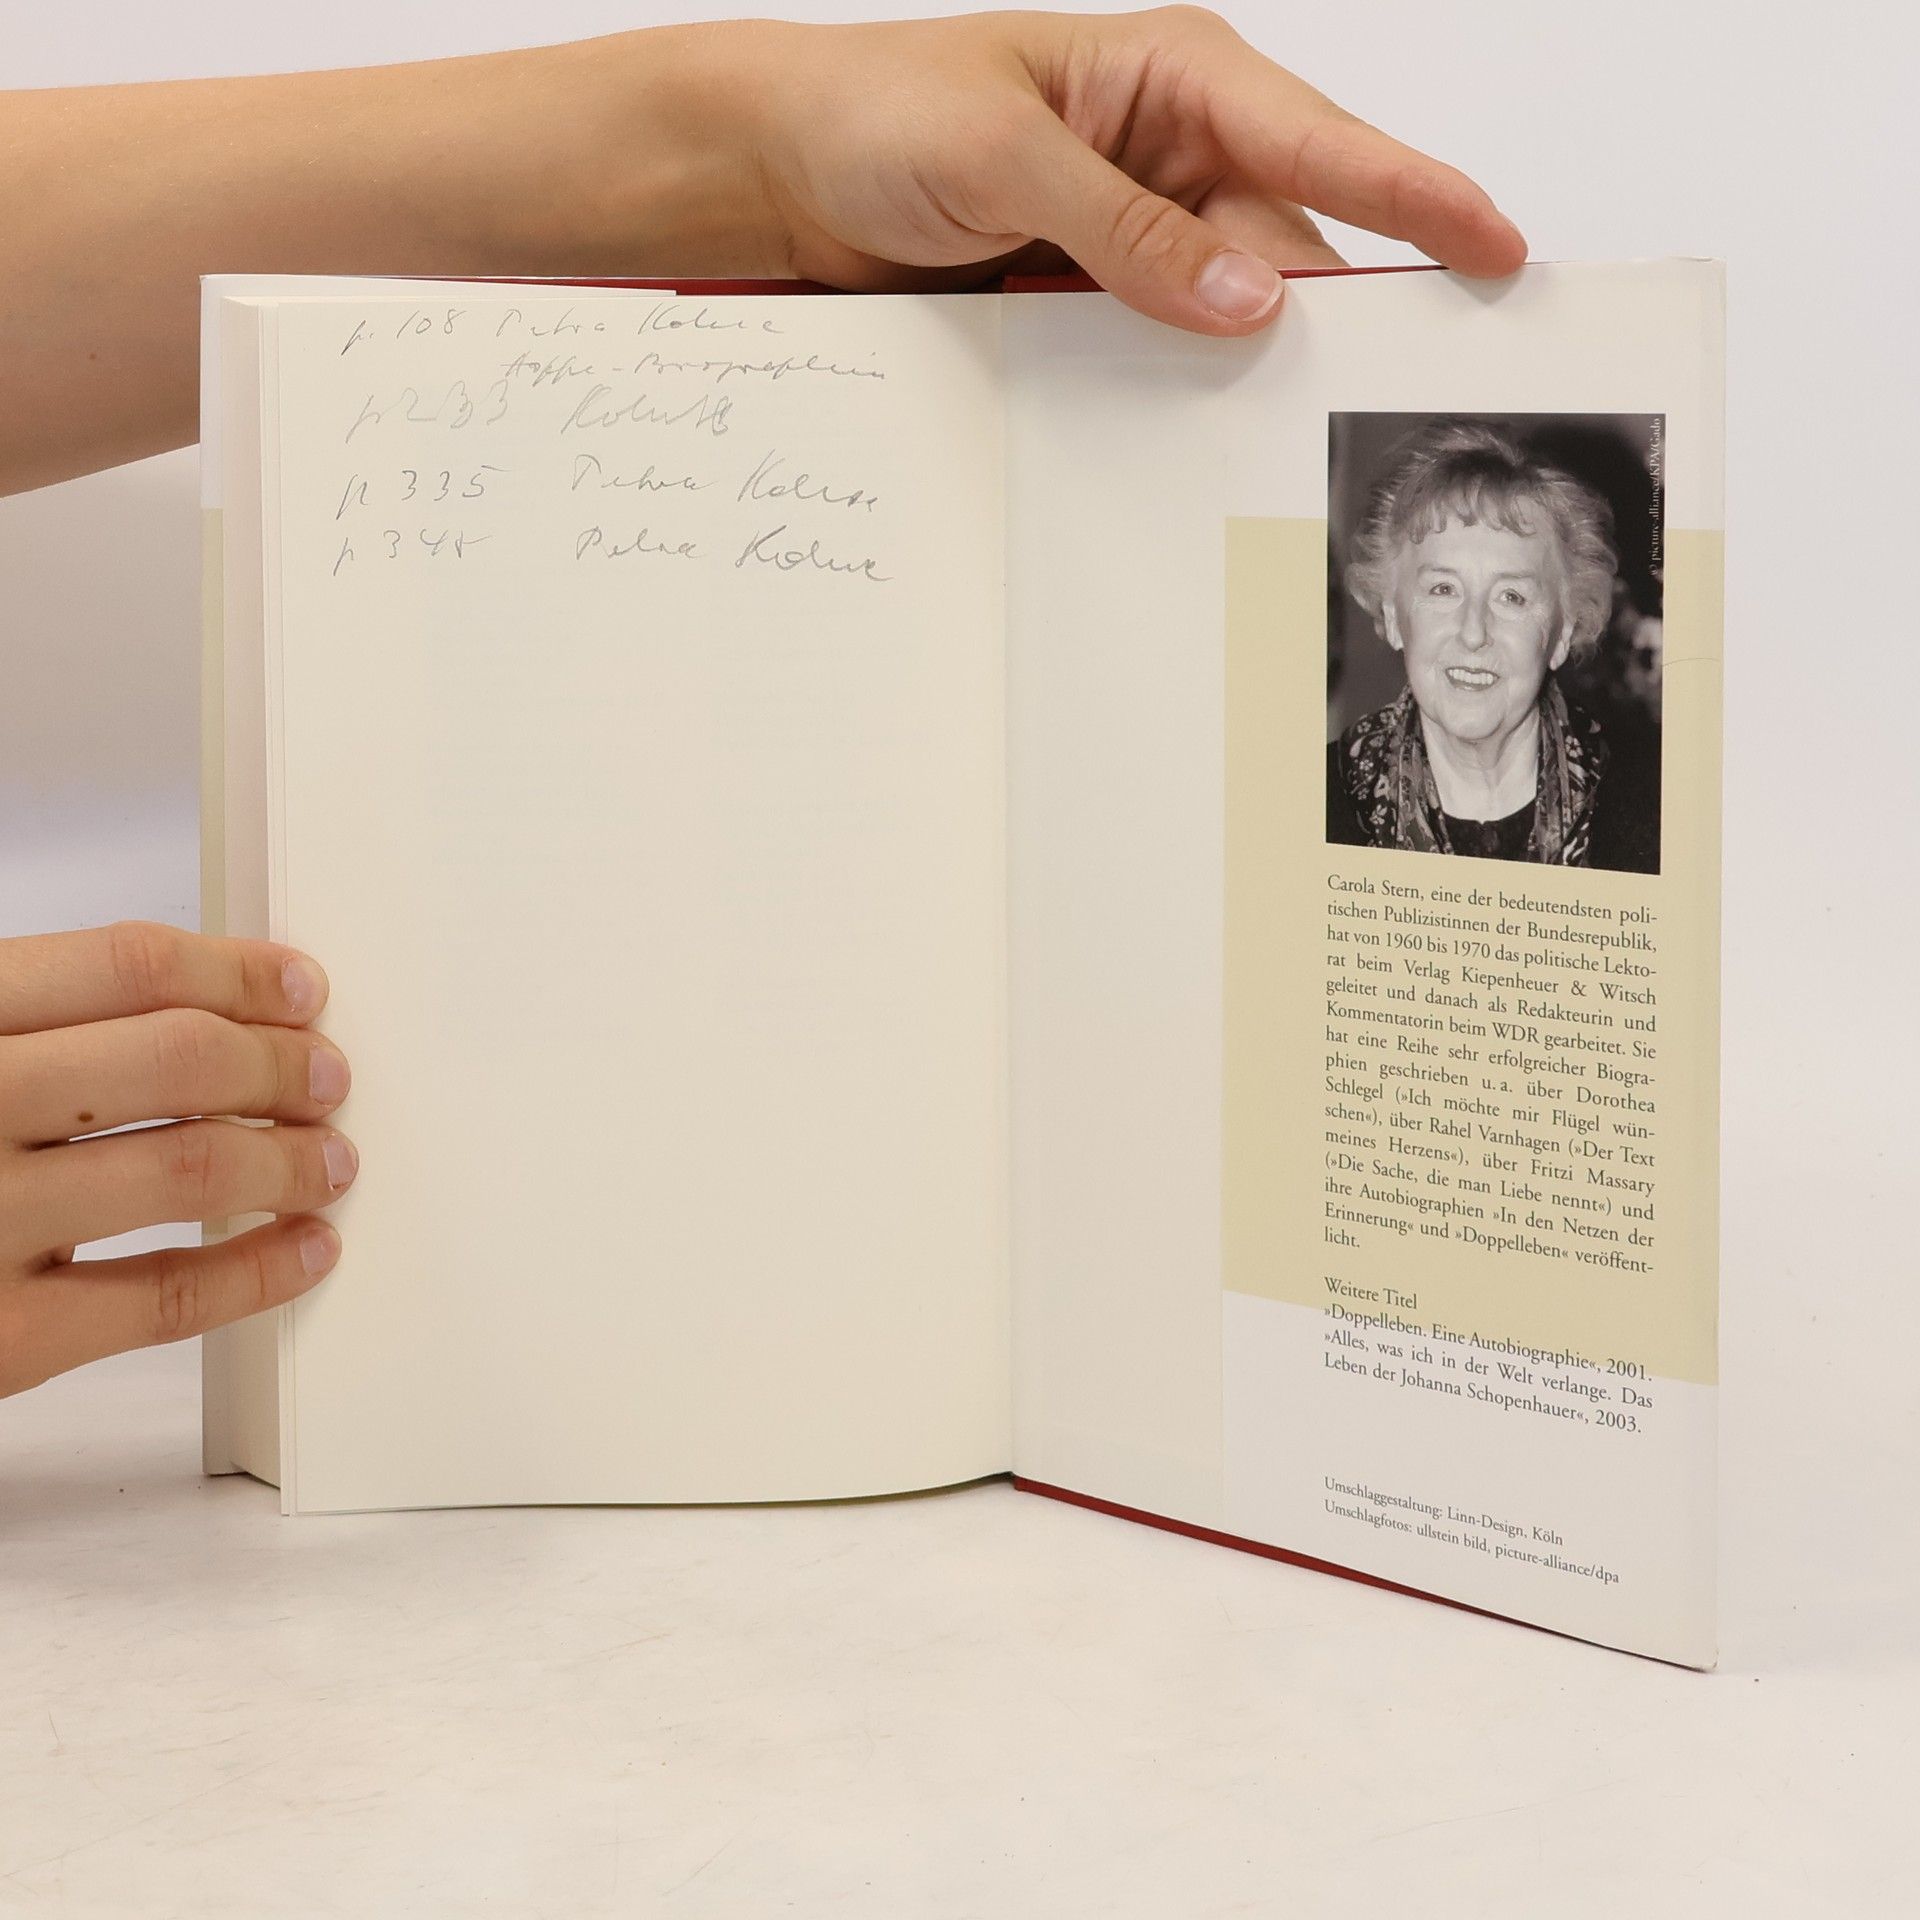 p. 108 Petra Kohse
Hoppe-Biographin
p 233
p 335 Petra Kohse
p 345 Petra Kohse
© picture-alliance/KPA/Gado
Carola Stern, eine der bedeutendsten poli-
tischen Publizistinnen der Bundesrepublik,
hat von 1960 bis 1970 das politische Lekto-
rat beim Verlag Kiepenheuer & Witsch
geleitet und danach als Redakteurin und
Kommentatorin beim WDR gearbeitet. Sie
hat eine Reihe sehr erfolgreicher Biogra-
phien geschrieben u. a. über Dorothea
Schlegel (»Ich möchte mir Flügel wün-
schen«), über Rahel Varnhagen (»Der Text
meines Herzens«), über Fritzi Massary
(»Die Sache, die man Liebe nennt«) und
ihre Autobiographien »In den Netzen der
Erinnerung« und »Doppelleben« veröffent-
licht.
Weitere Titel
»Doppelleben. Eine Autobiographie«, 2001.
»Alles, was ich in der Welt verlange. Das
Leben der Johanna Schopenhauer«, 2003.
Umschlaggestaltung: Linn-Design, Köln
Umschlagfotos: ullstein bild, picture-alliance/dpa